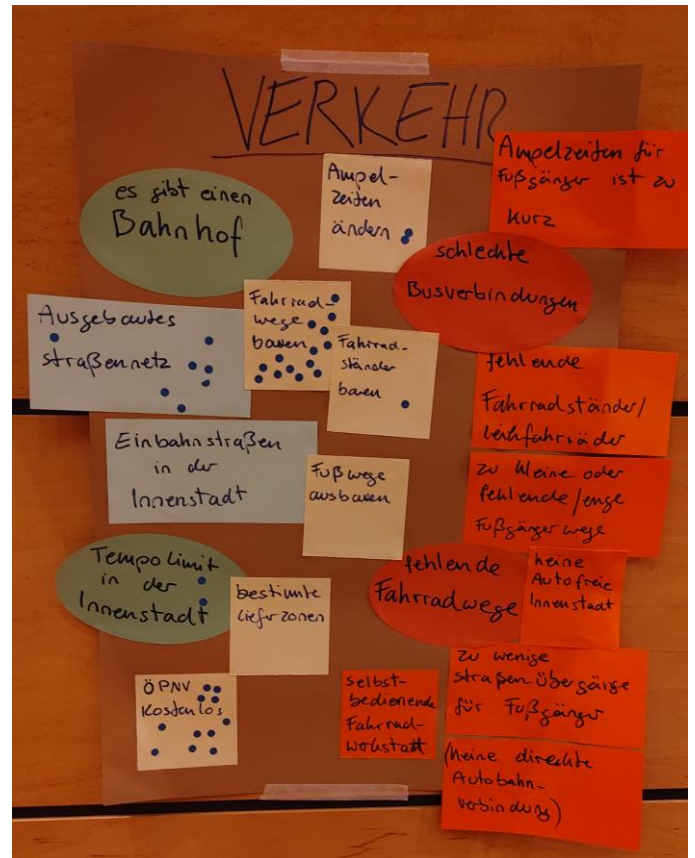 VERKEHR
es gibt einen
Bahnhof
Ampel-
zeiten
ändern
Ampelzeiten für
Fußgänger ist zu
kurz
schlechte
Busverbindungen
Ausgebautes
straßennetz
Fahrrad-
wege
bauen
Fahrrad-
ständer
bauen
fehlende
Fahrradständer/
leihfahrräder
Einbahnstraßen
in der
Innenstadt
Fußwege
ausbauen
zu kleine oder
fehlende/enge
Fußgänger wege
Tempo Limit
in der
Innenstadt
bestimte
Lieferzonen
fehlende
Fahrradwege
keine
Autofreie
Innenstadt
ÖPNV
Kostenlos
selbst-
bedienende
Fahrrad-
werkstatt
zu wenige
straßenübergänge
für Fußgänger
(keine direkte
Autobahn-
verbindung)